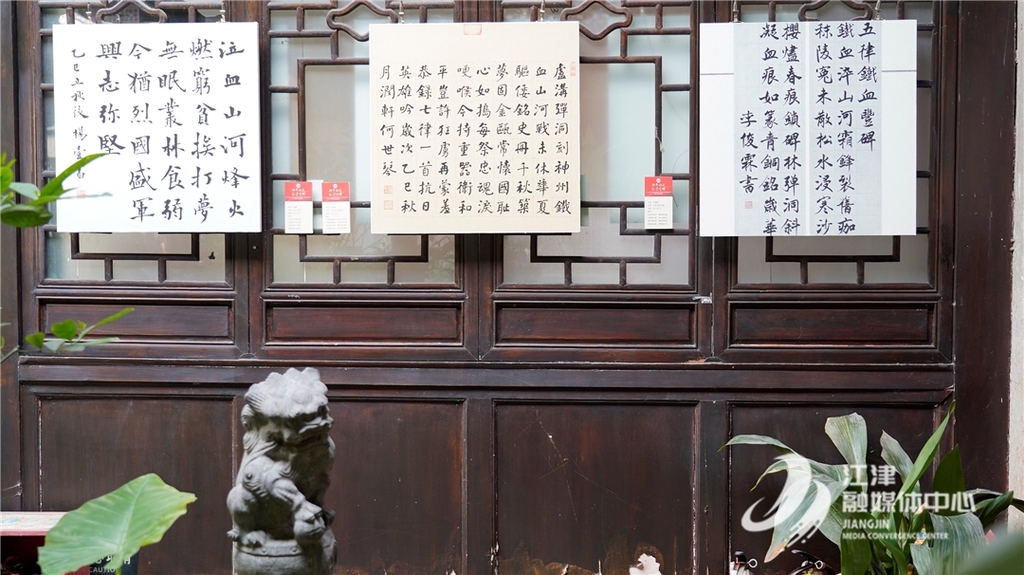 五律鐵血豐碑
鐵血淬山河霜鋒製舊痂
秣陵冤未散松水浸寒沙
櫻燼春痕鎖碑林弹洞斜
凝血痕如篆青銅詔歲華
李俊霖书
盧溝彈洞刻神州鐵
血山河戰未休華夏
驅倭銘史冊千秋築
夢固金甌常懷國耻
心如搗每祭忠魂淚
哽喉今持重器衛和
平豈許狂虜再蒙羞
恭録七律一首抗日
英雄吟歲次乙巳秋
月潤軒何世琴
泣血山河烽火
燃窮貧挨打夢
無眠叢林食弱
今猶烈國盛軍
興志弥堅
乙巳立秋後楊
江津
融媒体中心
JIANGJIN
MEDIA CONVERGENCE CENTER
CAUTION